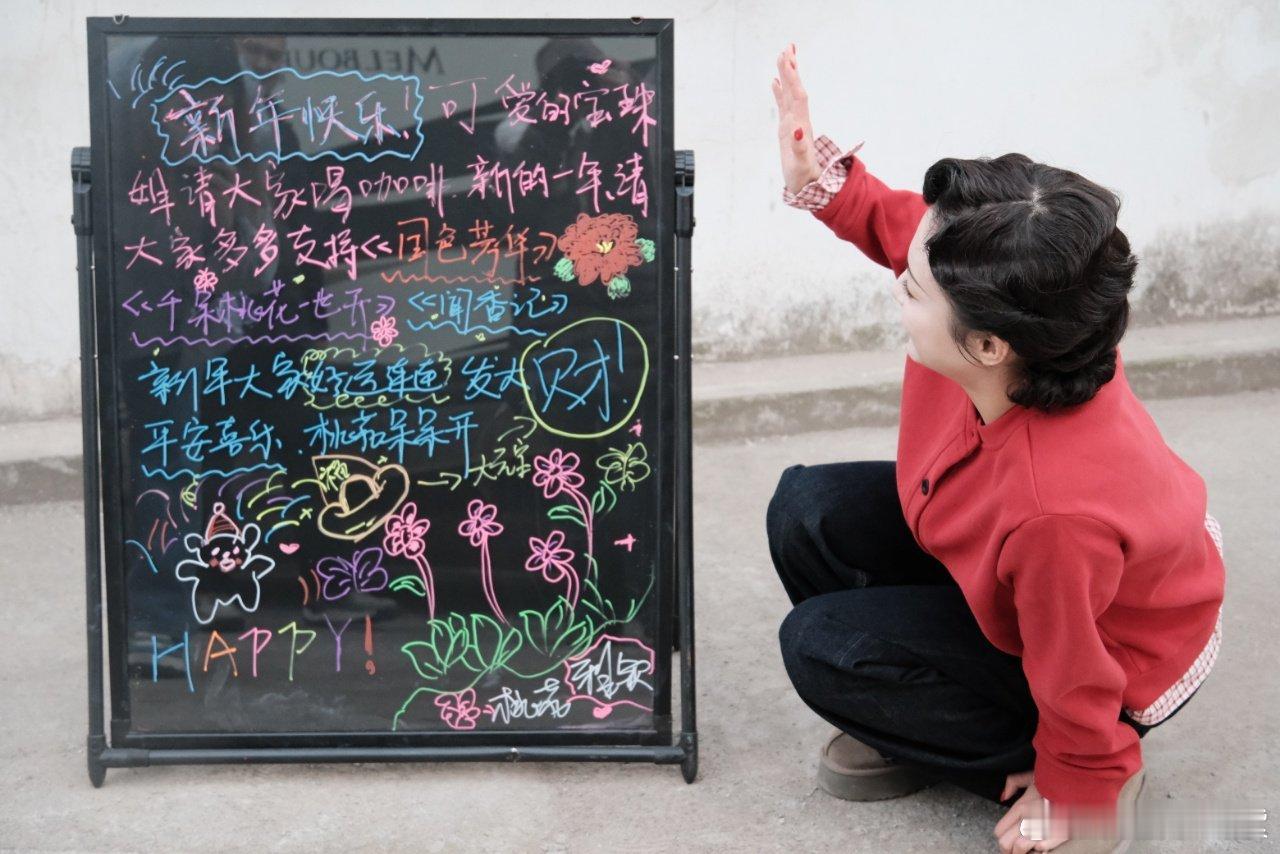 MELBOU
新年快乐! 可爱的宝珠
姐请大家喝咖啡.新的一年请
大家多多支持<<国色芳华>>
<<千朵桃花一世开>> <<闻香记>>
新年大家好运连连 发大财!
平安喜乐.桃花朵朵开
福 → 大元宝
HAPPY!
桃花